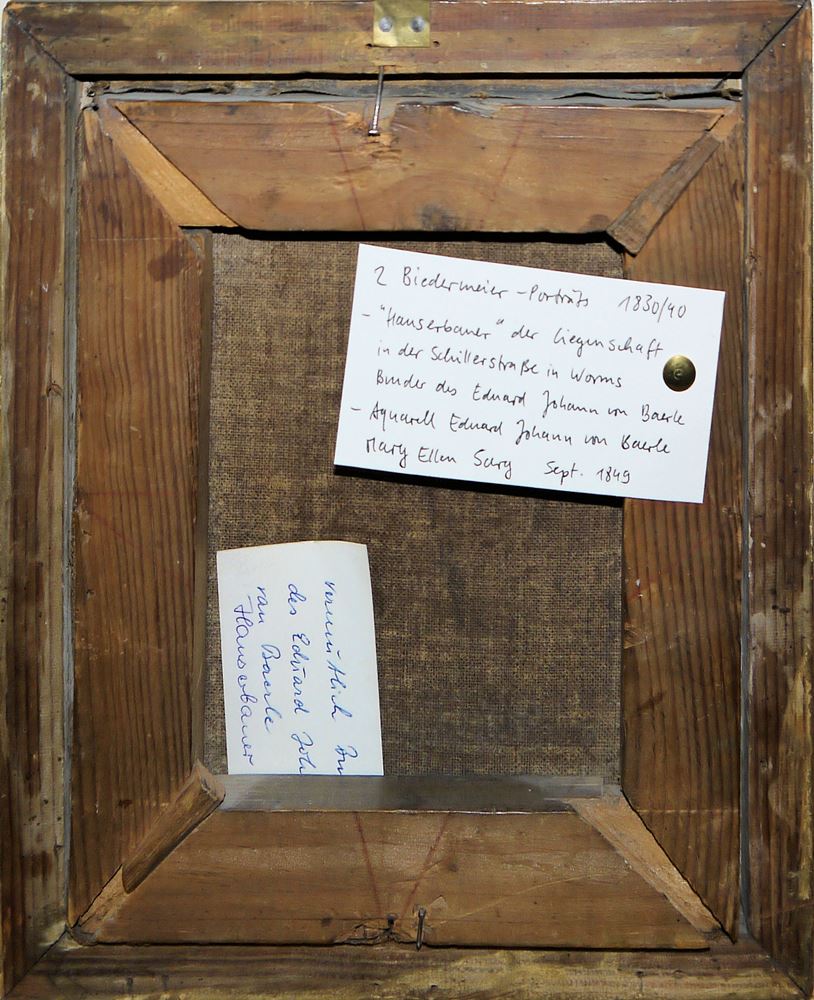 2 Biedermeier-Porträts 1830/40
- "Hauserbauer" der Liegenschaft
in der Schillerstraße in Worms
Bruder des Eduard Johann von Baerle
- Aquarell Eduard Johann von Baerle
Mary Ellen Sarg Sept. 1849
vermutlich Bru
des Eduard Joh
van Baerle
Hauserbauer